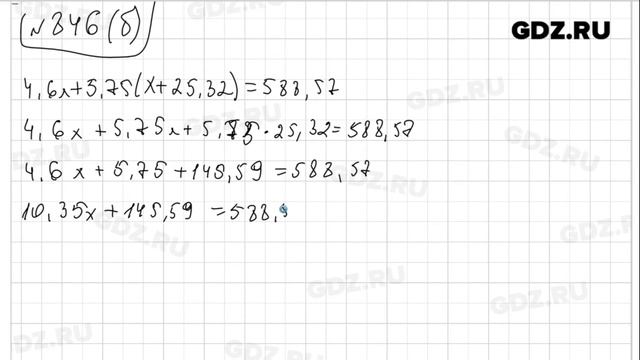 №846(б)
GDZ.RU
4,6x+5,75(x+25,32)=588,57
4,6x+5,75x+5,75·25,32=588,57
4,6x+5,75+145,59=588,57
10,35x+145,59=588,5